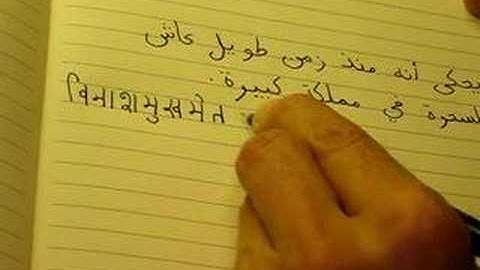 يحكى أنه منذ زمن طويل عاش
لسحرة في مملكة كبيرة.
विनाशमुखमेत